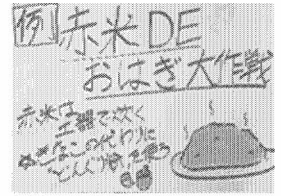 例 赤米DE
おはぎ大作戦
赤米は
土鍋で炊く
きなこの代わりに
どんぐり粉を使う